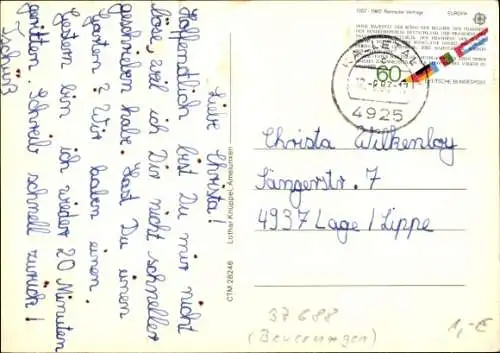 Liebe Christa!
Hoffendlich bist Du mir nicht
böse, weil ich Dir nicht schneller
geschrieben habe. Hast Du einen
Garten? Wir haben einen.
Gestern bin ich wieder 20 Minuten
geritten. Schreib schnell zurück!
Tschüß
Lothar Knüppel, Amelunxen
CTM 28246
1957-1982 Römische Verträge
EUROPA
60
DEUTSCHE BUNDESPOST
4925
Christa Wilkenloy
Sängerstr. 7
4937 Lage/Lippe
37688
(Beverungen)
1,-€